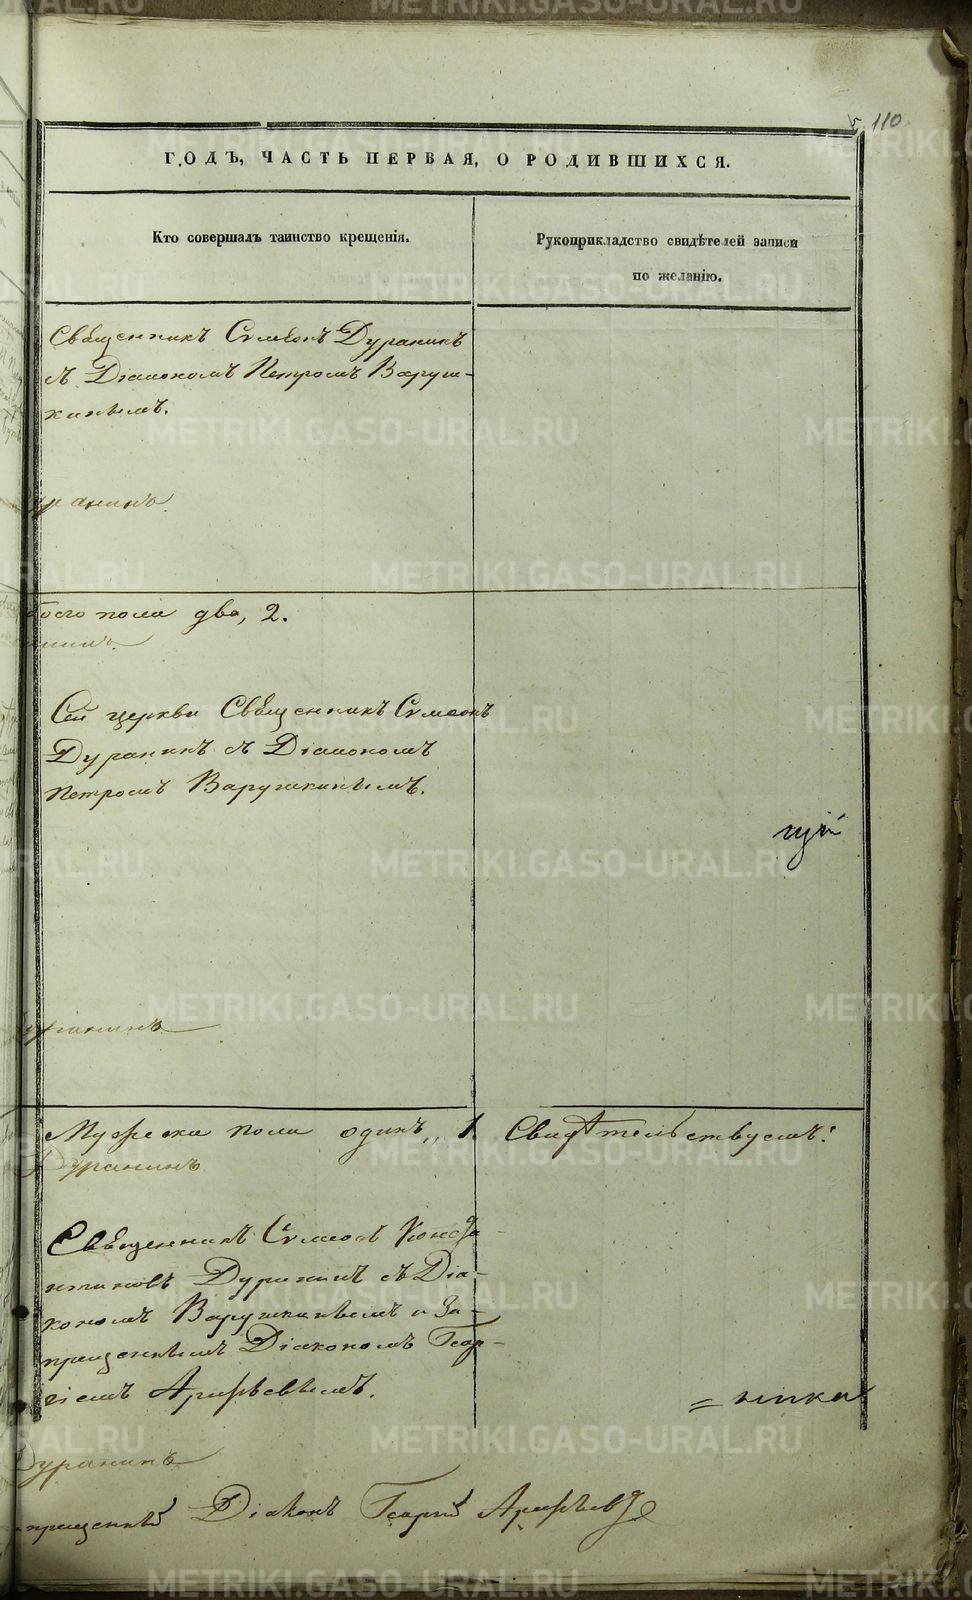 110
ГОДЪ, ЧАСТЬ ПЕРВАЯ, О РОДИВШИХСЯ.
Кто совершалъ таинство крещенія.
Рукоприкладство свидѣтелей записи
по желанію.
Священникъ Сѵмеонъ Дуранинъ
съ Діакономъ Петромъ Варуш-
кинымъ.
уранинъ
обоего пола два, 2.
Сей церкви Священникъ Сѵмеонъ
Дуранинъ съ Діакономъ
Петромъ Варушкинымъ.
щій
уранинъ
Мужеска пола одинъ, 1. Свидѣтельствуемъ:
Дуранинъ
Священникъ Сѵмеонъ Конста-
нтиновъ Дуранинъ съ Діа-
кономъ Варушкинымъ и За-
прещеннымъ Діакономъ Геор-
гіемъ Арефьевымъ.
= ника
Дуранинъ
прещенный Діаконъ Георгій Арефьевъ
METRIKI.GASO-URAL.RU